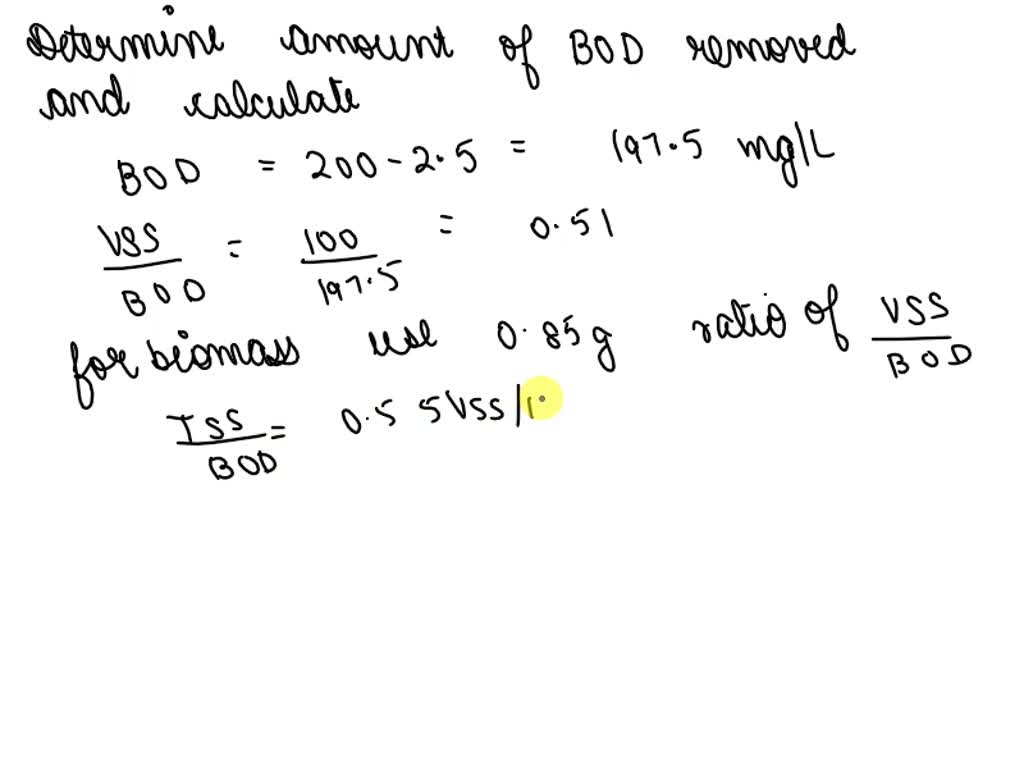 Determine amount of BOD removed
and calculate
BOD = 200 - 2.5 = 197.5 mg/L
VSS/BOD = 100/197.5 = 0.51
for biomass use 0.85g ratio of VSS/BOD
TSS/BOD = 0.5 5VSS|